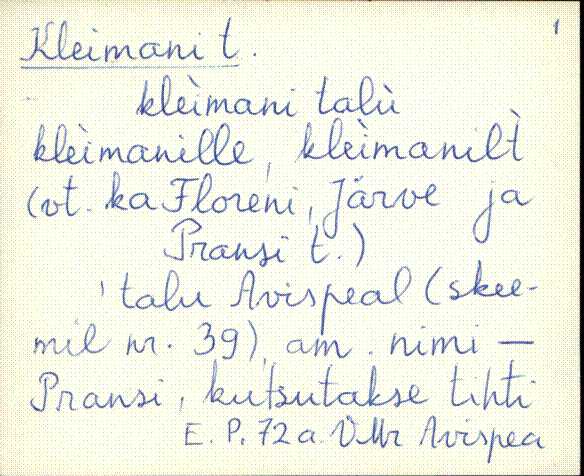 Kleimani t. 1
klèimani talù
klèimanille, klèimanilt̀
(vt. ka Floreni, Järve ja
Pransi t.)
' talu Avispeal (skee-
mil nr. 39), am. nimi —
Pransi, kutsutakse tihti
E. P. 72 a. VMr Avispea